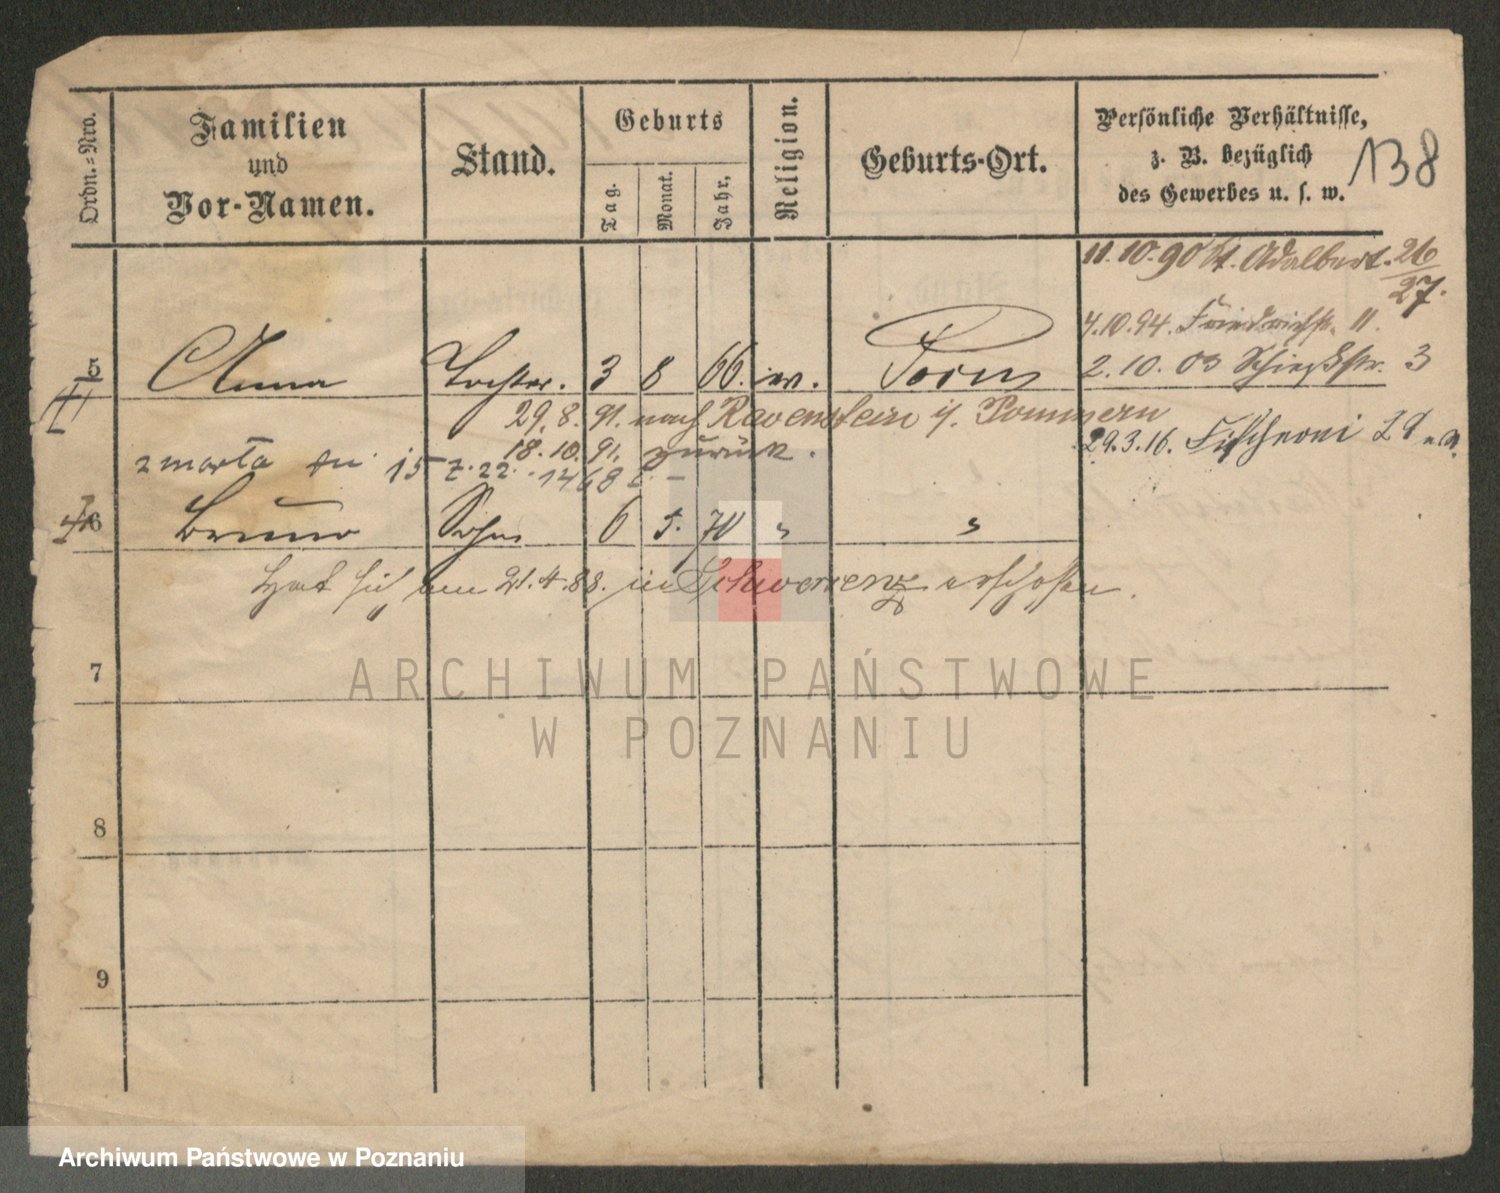 Ordn.-Nro.
Familien
und
Vor-Namen.
Stand.
Geburts
Tag.
Monat.
Jahr,
Religion.
Geburts-Ort.
Persönliche Verhältnisse,
z. B. bezüglich
des Gewerbes u. s. w.
138
11.10.90 St. Adalbert. 26/27.
4.10.94. Friedrichstr. 11.
5 Anna Tochter. 3 8 66. ev. Posen 2.10.03 Schießstr. 3
29.8.91. nach Ravenstein i/ Pommern
18.10.91. zurück. 29.3.16. Fischerei 29
zmarła dn. 15 22. 1468
6 Bruno Sohn 6 5. 70 " "
Hat sich am 21.4.88. in Schwersenz erschossen.
7
8
9
ARCHIWUM PAŃSTWOWE
W POZNANIU
Archiwum Państwowe w Poznaniu